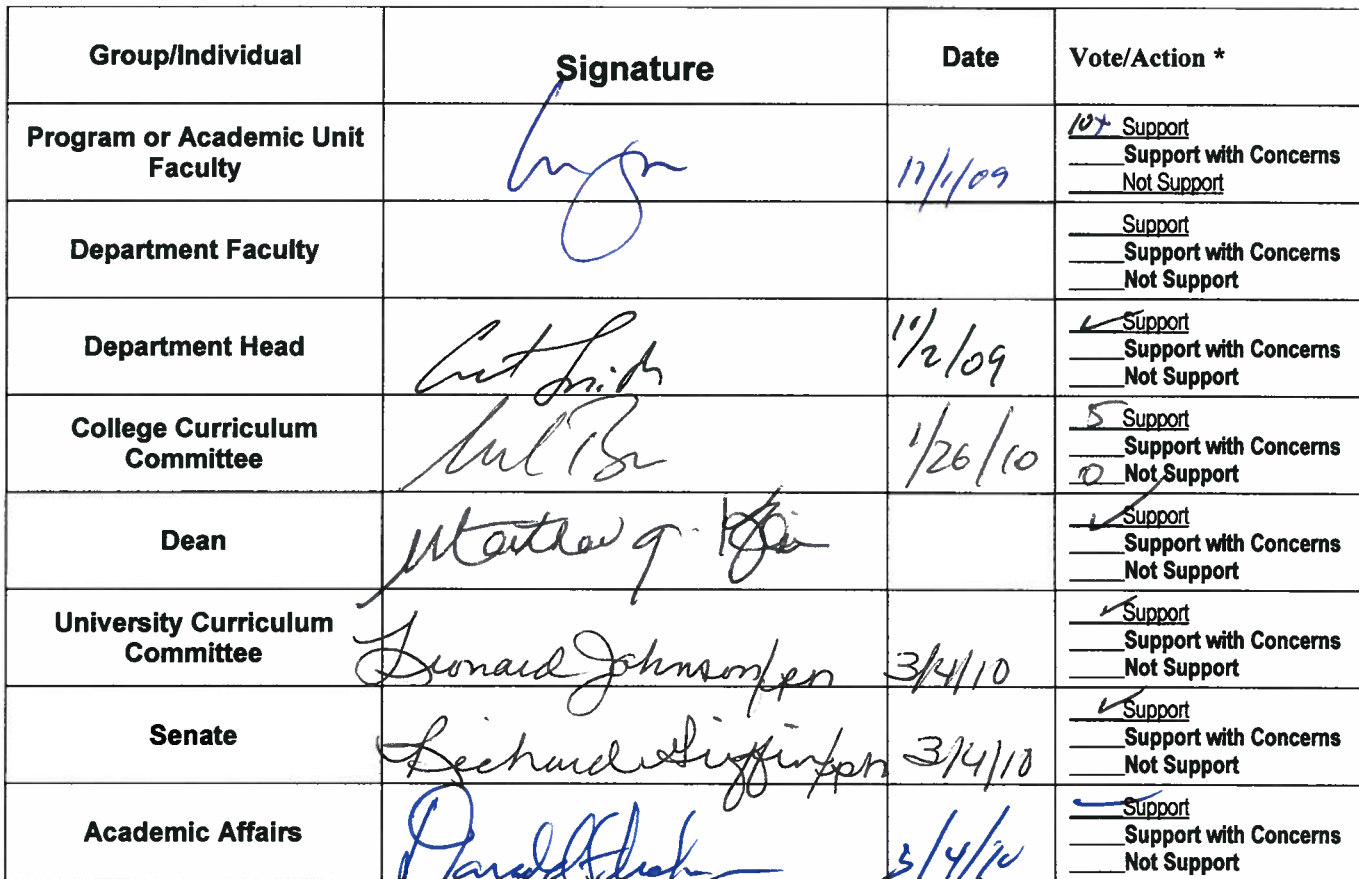 Group/Individual Signature Date Vote/Action *
Program or Academic Unit Faculty 11/1/09 10+ Support
____Support with Concerns
____Not Support
Department Faculty ____Support
____Support with Concerns
____Not Support
Department Head 11/2/09 ✓Support
____Support with Concerns
____Not Support
College Curriculum Committee 1/26/10 5 Support
____Support with Concerns
0 Not Support
Dean ✓Support
____Support with Concerns
____Not Support
University Curriculum Committee Leonard Johnson/ppn 3/4/10 ✓Support
____Support with Concerns
____Not Support
Senate Richard Giffin/ppn 3/4/10 ✓Support
____Support with Concerns
____Not Support
Academic Affairs 3/4/10 Support
____Support with Concerns
____Not Support